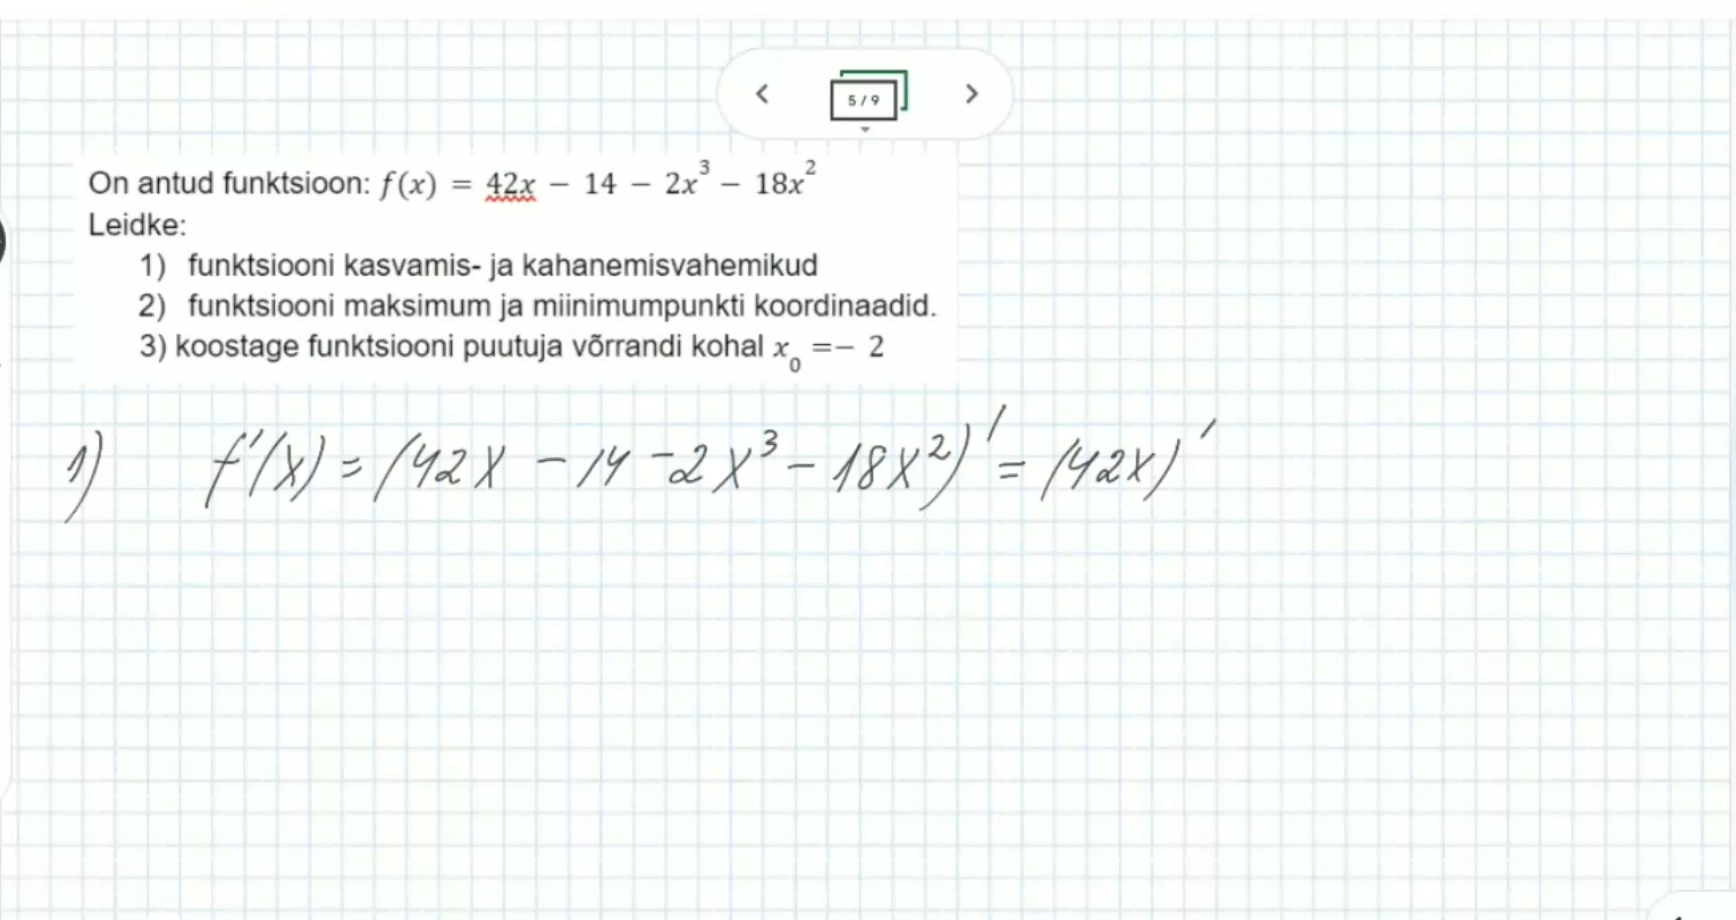 5 / 9
On antud funktsioon: f(x) = 42x − 14 − 2x³ − 18x²
Leidke:
1) funktsiooni kasvamis- ja kahanemisvahemikud
2) funktsiooni maksimum ja miinimumpunkti koordinaadid.
3) koostage funktsiooni puutuja võrrandi kohal x₀ =− 2
1) f'(x) = (42x − 14 −2x³ − 18x²)' = (42x)'